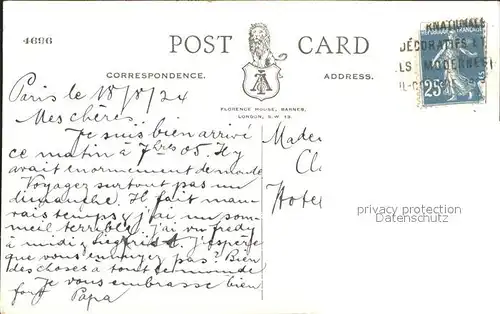 4696
POST CARD
CORRESPONDENCE.
ADDRESS.
FLORENCE HOUSE, BARNES,
LONDON, S.W. 13.
RNATIONALE
DÉCORATIFS ET
LS MODERNES
25c
Paris le 18/8/24
Mes chères.
Je suis bien arrivé
ce matin à 7hrs 05. Il y
avait enormement de monde
Voyagez surtout pas un
dimanche. Il fait mau-
vais temps, j'ai un som-
meil terrible. J'ai vu Fredy
à midi, Siegfried. J'espère
que vous ennuyez pas? Bien
des choses à tout le monde
Je vous embrasse bien
fort
Papa
Hotel
privacy protection